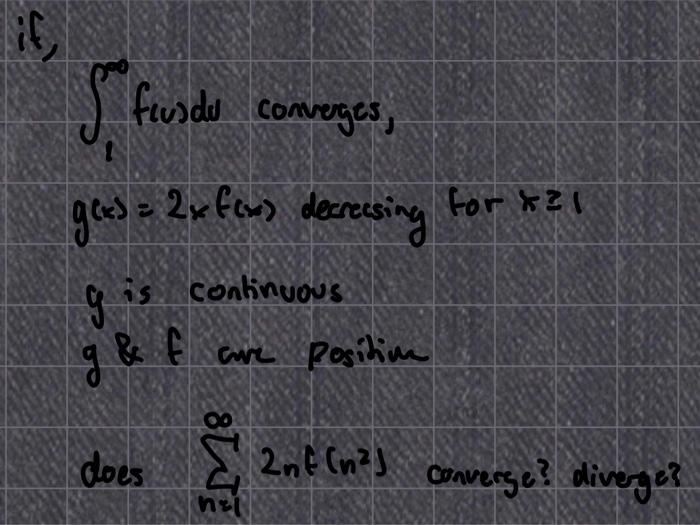 if,
∫₁^∞ f(u)du converges,
g(x) = 2x f(x) decreasing for x ≥ 1
g is continuous
g & f are positive
does ∑_{n=1}^∞ 2n f(n²) converge? diverge?